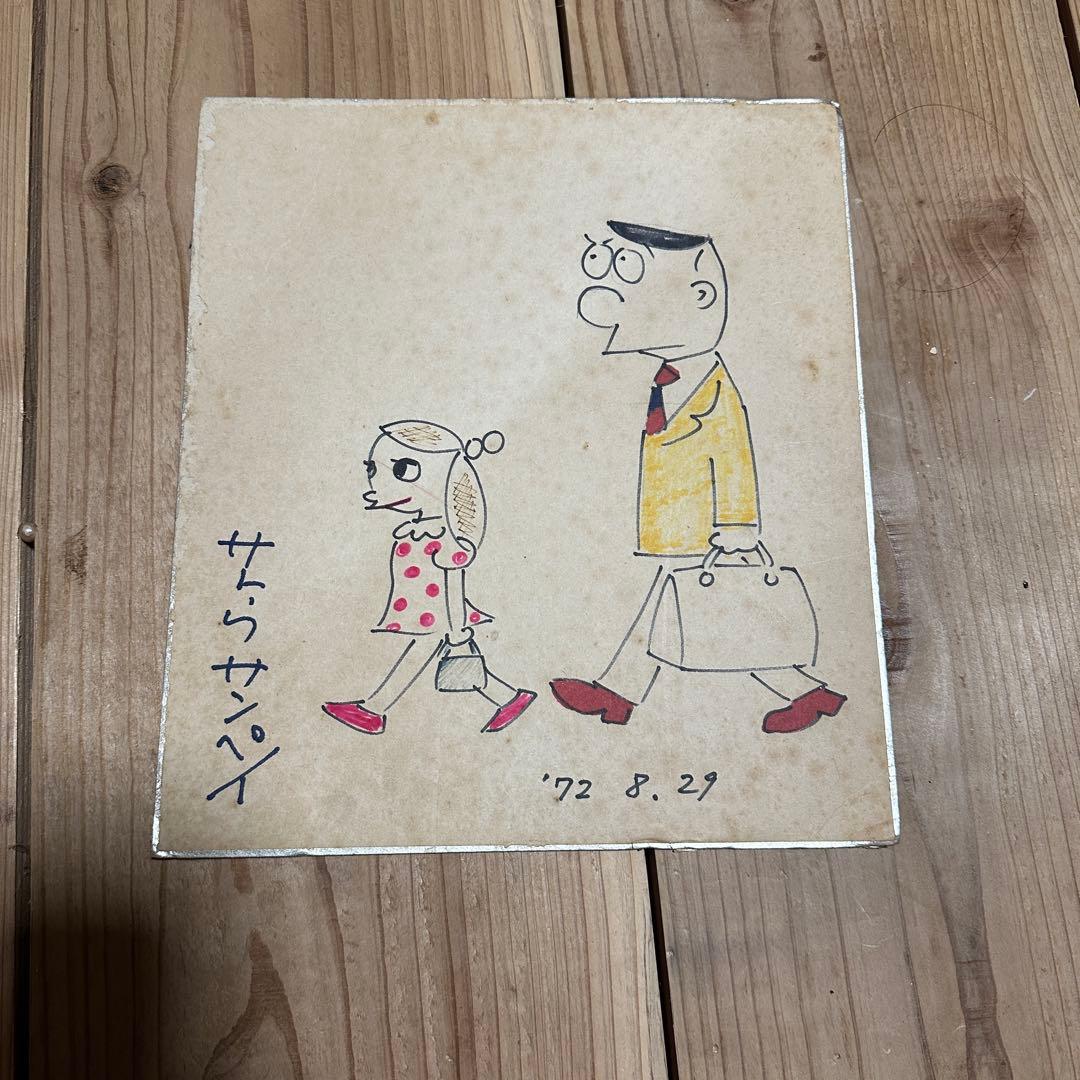 サトウサンペイ
'72 8. 29